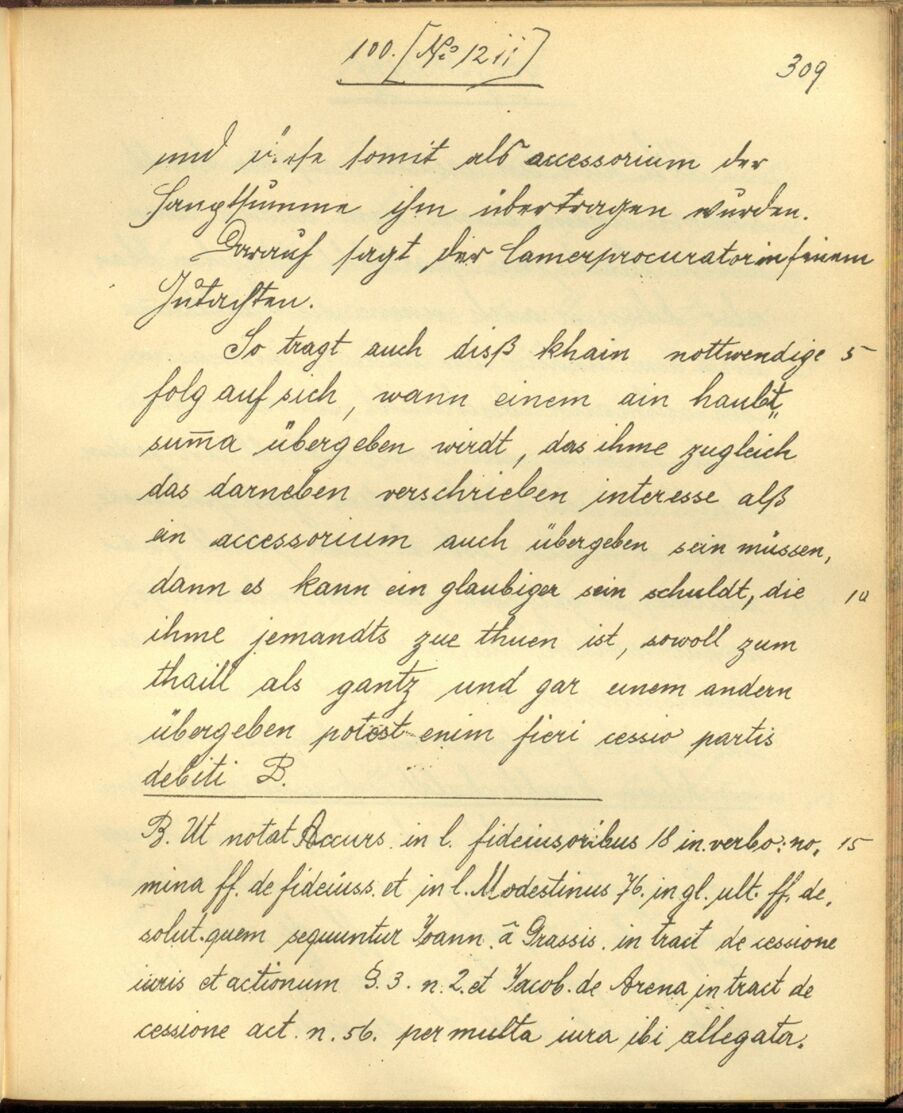 100. [No 12 ii]
309
und diese somit als accessorium der
Hauptsumme ihm übertragen wurden.
Darauf sagt der Camerprocurator in seinem
Gutachten.
So tragt auch disß khain nottwendige 5
folg auf sich, wann einem ain haubt„
sum̄a übergeben wirdt, das ihme zugleich
das darneben verschrieben interesse alß
ein accessorium auch übergeben sein müssen,
dann es kann ein glaubiger sein schuldt, die 10
ihme jemandts zue thuen ist, sowoll zum
thaill als gantz und gar einem andern
übergeben potest enim fieri cessio partis
debiti B.
B. Ut notat Accurs. in l. fideiusoribus 18 in verbo: no, 15
mina ff. de fideiuss. et in l. Modestinus 76. in gl. ult. ff. de,
solut. quem sequuntur Joann. â Grassis. in tract de cessione
iuris et actionum §. 3. n. 2. et Jacob. de Arena in tract de
cessione act. n. 56. per multa iura ibi allegata.